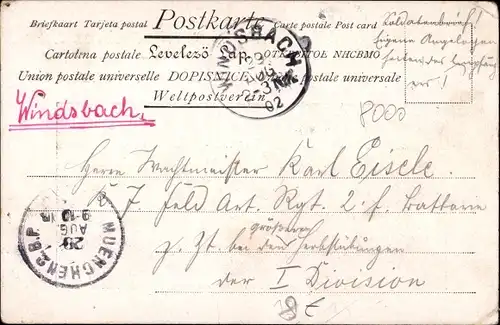 Briefkaart Tarjeta postal Postkarte Carte postale Post card
Cartolina postale Levelező lap ОТКРЫТОЕ ПИСЬМО
Union postale universelle DOPISNICE postale universale
Weltpostverein
WINDSBACH
02
Windsbach.
Soldatenbrief!
Eigene Angelegen
heiten des Empfäng
ers!
8000
Herrn Wachtmeister Karl Eisele
K 7 Feld Art. Rgt. 2. f. Batterie
größeren
z. Zt. bei den Herbstübungen
der I Division
MUENCHEN 2 B.P.
29
AUG.
9-10
8